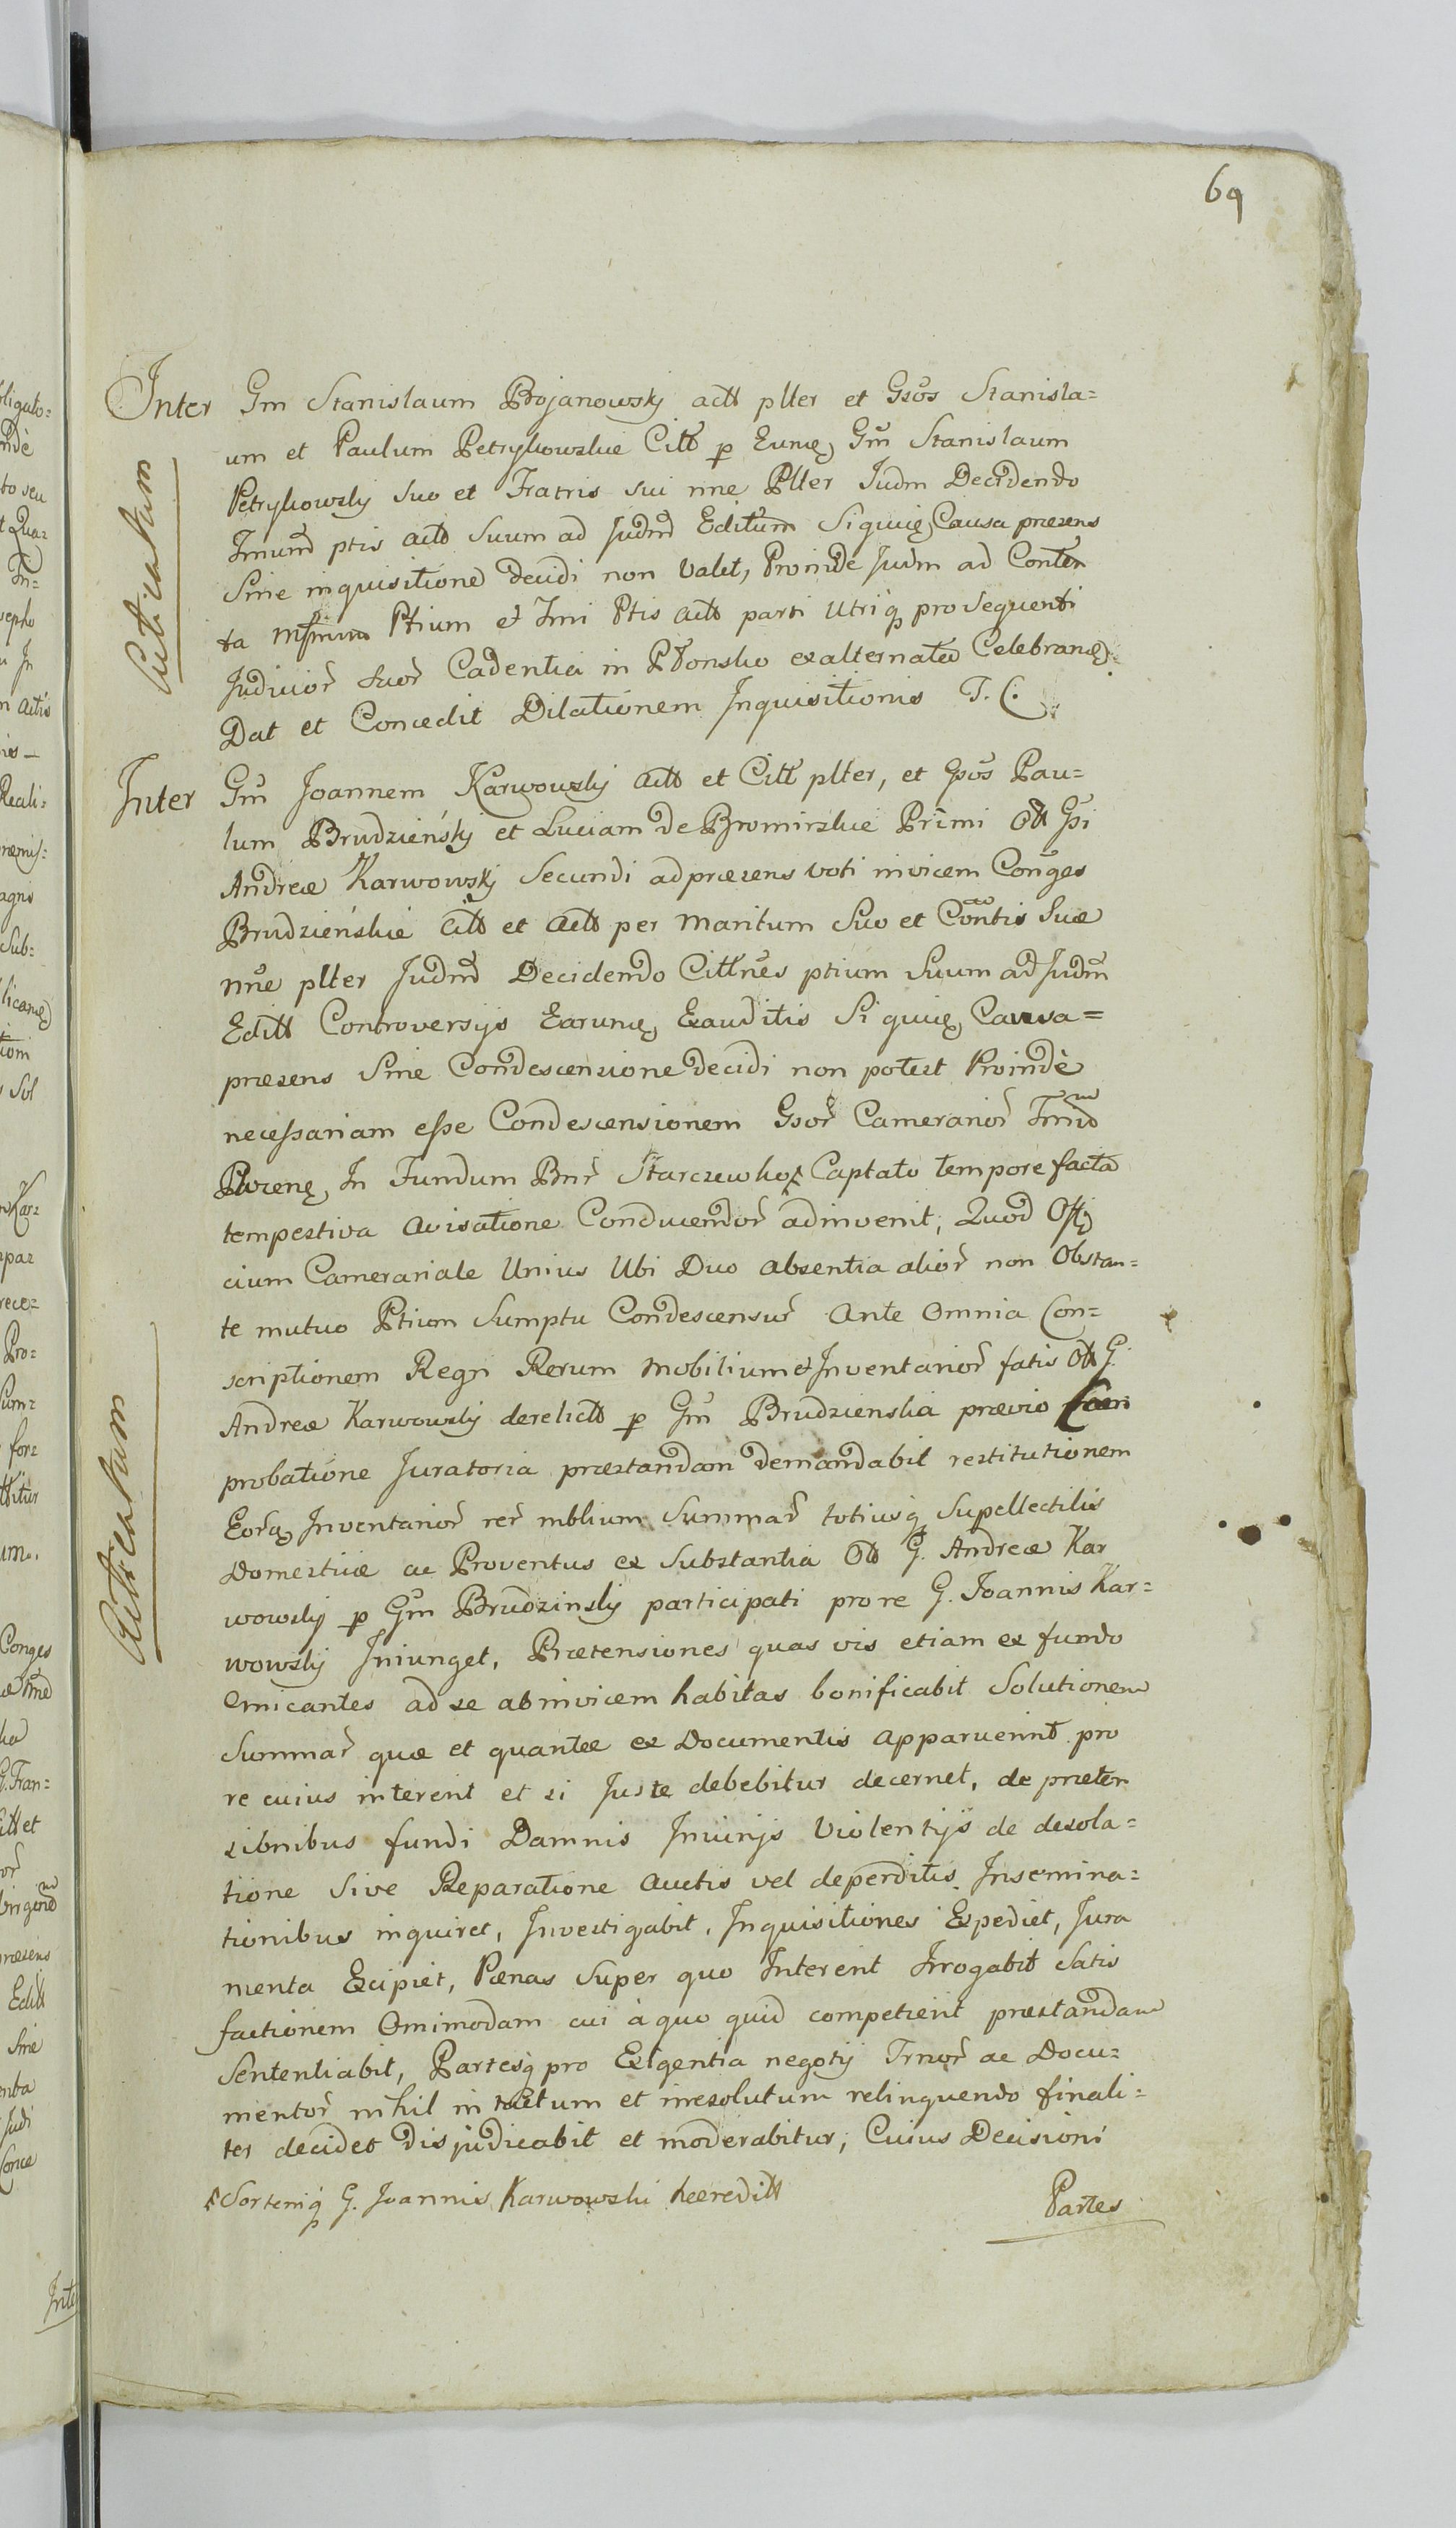 69
Inter Gm Stanislaum Bojanowskj actt plter et Gsos Stanisla=
um et Paulum Petrykowskie Citt p Eunq Gm Stanislaum
Petrykowskj suo et Fratris sui nne Plter Judm Decidendo
Tmum ptis actt Suum ad Judm Editum Siquiq Causa præsens
Sine inquisitione decidi non Valet, Proinde Judm ad Conten
ta Ptium et Tmi Ptis actt parti Utriq pro sequenti
Judicior Suor Cadentia in Płonsko ex alternata Celebranq
Dat et Concedit Dilationem Inquisitionis T. C.
Publicatum
Inter Gm Joannem Karwowskj Actt et Citt plter, et Gsos Pau=
lum Brudzieńskj et Luciam de Bromirskie Primi Ott Gsi
Andreæ Karwowskj Secundi ad præsens voti invicem Conges
Brudzieńskie Citt et Actt per Maritum Suo et Contis Suæ
nne plter Judm Decidendo Cittnes ptium Suum ad Judm
Editt Controversijs Earunq Exauditis Siquiq Causa=
præsens Sine Condescensione decidi non potest Proindè
necessariam esse Condescensionem Gsor Camerarior
In Fundum Bnr Starczewko Captato tempore facta
tempestiva avisatione Conducendor adinvenit, Quod Offi
cium Camerariale Unius Ubi Duo absentia alior non Obstan=
te mutuo Ptium Sumptu Condescensur Ante Omnia Con=
scriptionem Regri Rerum Mobilium et Inventarior fatis Ott G.
Andreæ Karwowskj derelictt p Gm Brudzienskia prævio
probatione Juratoria præstandam demandabit restitutionem
Inventarior rer mblium Summar totiusq Supellectilis
Domesticæ ac Proventus ex Substantia Ott G. Andreæ Kar
wowskj p Gm Brudzinskj participati pro re G. Joannis Kar=
wowskj Iniunget, Prætensiones quas vis etiam ex fundo
emicantes ad se ab invicem habitas bonificabit Solutionem
Summar quæ et quantæ ex Documentis apparuerint pro
re cuius intererit et si Juste debebitur decernet, de præten
sibnibus fundi Damnis Iniurijs Violentijs de desola=
tione Sive Reparatione auctis vel deperditis Insemina=
tionibus inquiret, Investigabit, Inquisitiones Expediet, Jura
menta Excipiet, Pœnas Super quo Intererit Irrogabit Satis
factionem Omimodam cui à quo quid competierit præstandam
Sententiabit, Partesq pro Exigentia negotij Trnor ac Docu=
mentor nihil in tactum et irresolutum relinquendo finali=
ter decidet disjudicabit et moderabitur, Cuius Decisioni
Publicatum
Sortemq G. Joannis Karwowski hæreditt
Partes